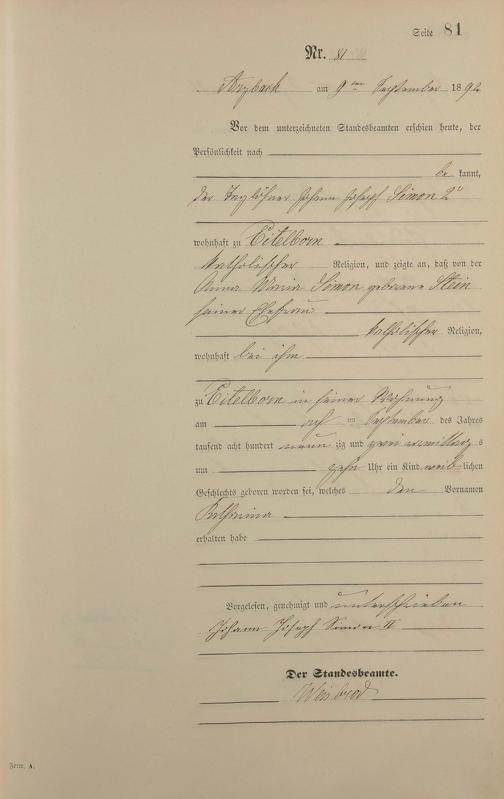 Seite 81
Nr. 81
Arzbach am 9ten September 1892
Vor dem unterzeichneten Standesbeamten erschien heute, der
Persönlichkeit nach
be kannt,
der Taglöhner Johann Joseph Simon 2r
wohnhaft zu Eitelborn
katholischer Religion, und zeigte an, daß von der
Anna Maria Simon geborene Stein
seiner Ehefrau
katholischer Religion,
wohnhaft bei ihm
zu Eitelborn in seiner Wohnung
am acht ten September des Jahres
tausend acht hundert neun zig und zwei vormittag s
um zehn Uhr ein Kind weib lichen
Geschlechts geboren worden sei, welches den Vornamen
Katharina
erhalten habe
Vorgelesen, genehmigt und unterschrieben
Johann Joseph Simon II
Der Standesbeamte.
Weisbrod
Form. A.